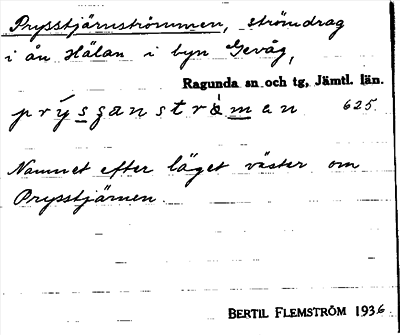 Prysstjärnströmmen, strömdrag
i ån Hälan i byn Gevåg,
Ragunda sn och tg, Jämtl. län.
625
Namnet efter läget väster om
Prysstjärnen.
BERTIL FLEMSTRÖM 1936